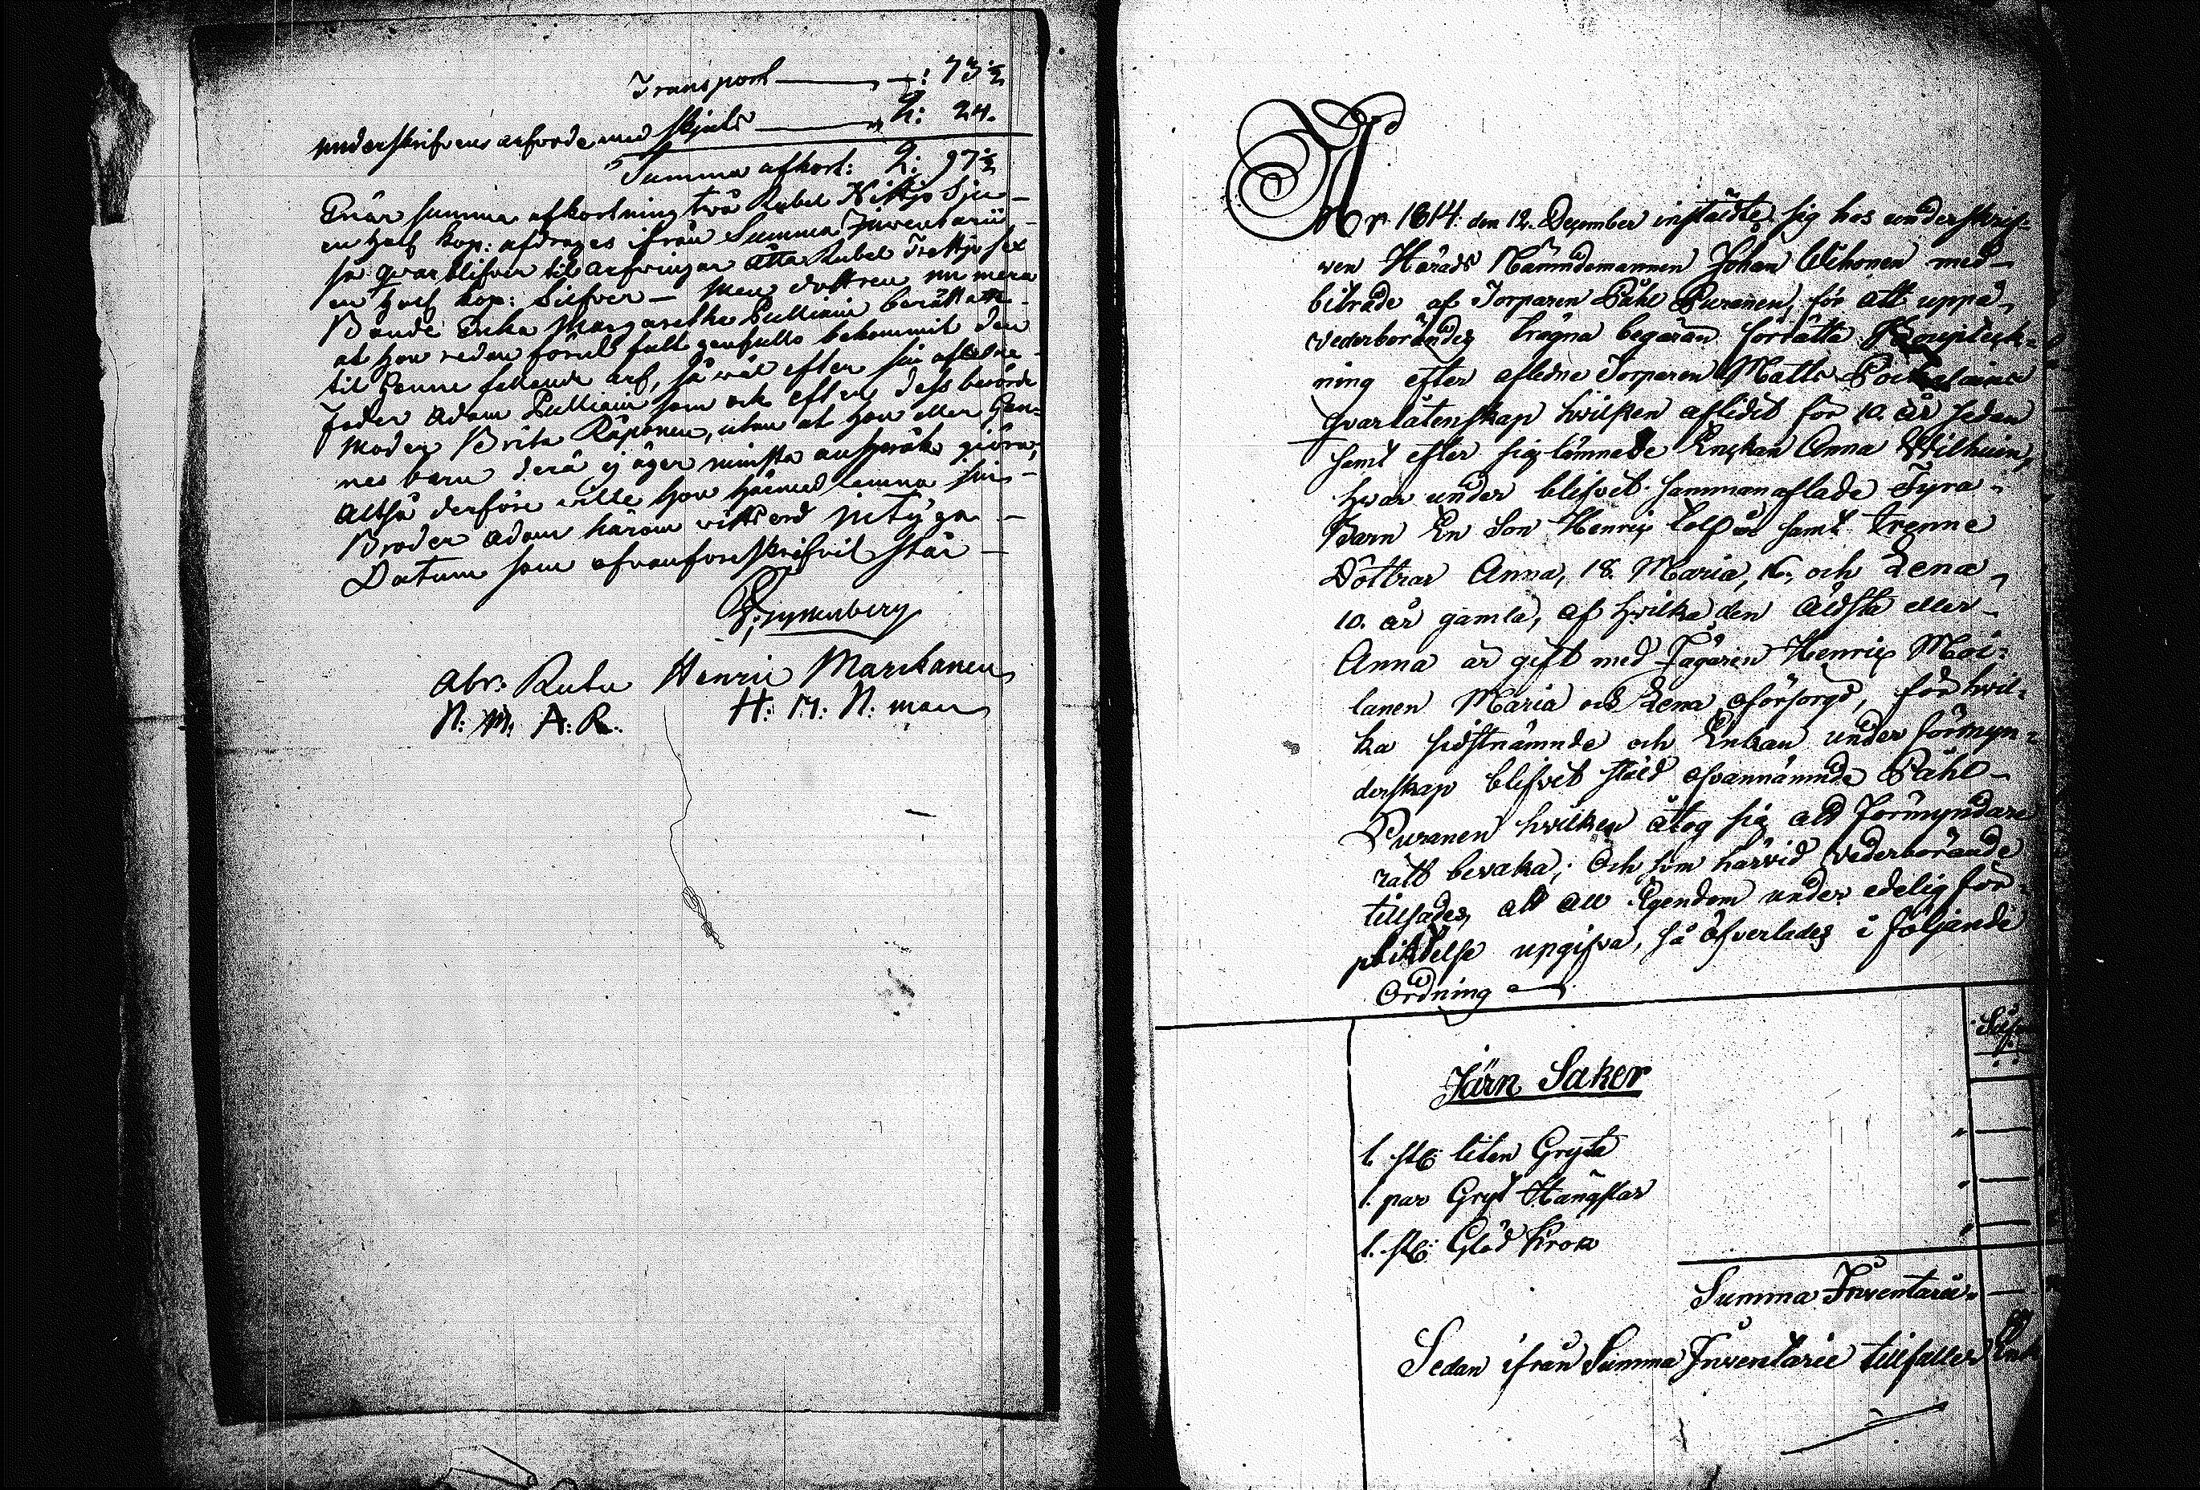 Transport — –: 73½
underskrifvens arfvode med skjuts — 2: 24.
Summa afkort: 2: 97½
Enär summa afkortning två Rubel Nittjo Sju
en half kop: afdrages ifrån Summa Inventarii
så qvarblifver til arfvingar åtta Rubel Trettjo sex
en half kop: Silfver — Men dottren nu mera
Bonde Enka Margaretha Pulliain berättade
at hon redan förut fult genfullo bekommit den
til henne fallande arf, så väl efter sin aflidne
Fader Adam Pulliain som ock efter dess berörde
Moder Brita Räponen, utan at hon eller hen-
nes barn derå ej äger minsta anspråk giöra,
Altså derföre ville hon härmed lemna sin
Broder Adam härom vittsord Intygar
Datum som ofvanföreskrifvit står —
Abr: Rutu Henric Marckanen
N: M: A: R. H: M: N: man
År 1814 den 12. December instäldte sig hos underskrif-
ven Härads Nämndemannen Johan Wihonen med
biträde af Torparen Påhl Puranen, för att uppå
vederbörandes trägna begäran förrätta Boupteck-
ning efter aflidne Torparen Matts
qvarlåtenskap hvilken aflidit för 10. år sedan
samt efter sig lämnade Enckan Anna Wilhuin,
hvar under blifvit sammanaflade Fyra
Barn En Son Henrix tolf år samt trenne
Döttrar Anna, 18. Maria, 16, och Lena
10. år gamla, af hvilka den äldsta eller
Anna är gift med Jägaren Henrix Moi-
lanen Maria och Lena oförsorgd, för hvil-
ka sidstnämnde och Enkan under förmyn-
derskap blifvit stäld ofvannämnde Påhl
Puranen hvilken åtog sig att Förmyndare
rätt bevaka; Och som härvid vederbörande
tillsades, att all Egendom under edelig för-
pliktelse upgifva, så öfverlades i följande
Ordning
Järn Saker
1. st: liten Gryta
1. par Gryt Hängslar
1. st: Glöd krok
Summa Inventarie
Sedan ifrån Summa Inventarie tillfaller Enk